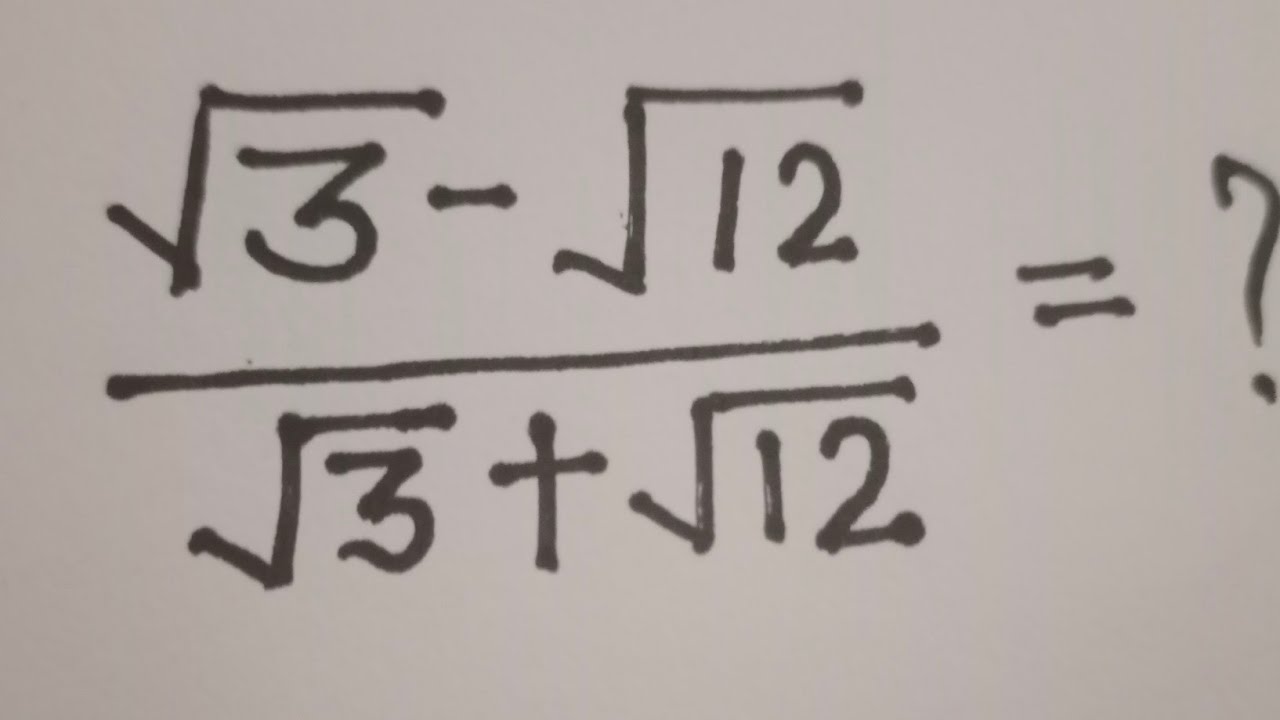 √3 - √12
√3 + √12
= ?